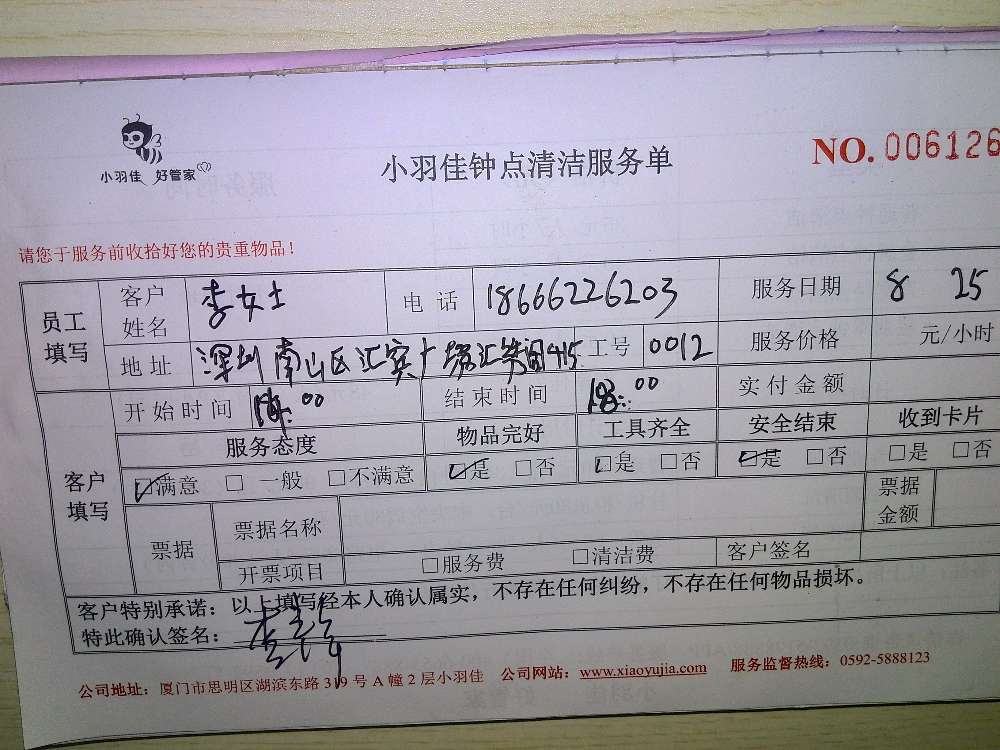 小羽佳 好管家
小羽佳钟点清洁服务单
NO. 006126
请您于服务前收拾好您的贵重物品！
员工填写 客户姓名 李女士 电话 18666226203 服务日期 8 25
地址 深圳南山区汇宾广场汇 415 工号 0012 服务价格 元/小时
客户填写 开始时间 :00 结束时间 18:00 实付金额
服务态度 物品完好 工具齐全 安全结束 收到卡片
☑满意 □一般 □不满意 ☑是 □否 ☑是 □否 ☑是 □否 □是 □否
票据 票据名称 票据金额
开票项目 □服务费 □清洁费 客户签名
客户特别承诺：以上填写经本人确认属实，不存在任何纠纷，不存在任何物品损坏。
特此确认签名：
公司地址：厦门市思明区湖滨东路319号A幢2层小羽佳 公司网站：www.xiaoyujia.com 服务监督热线：0592-5888123